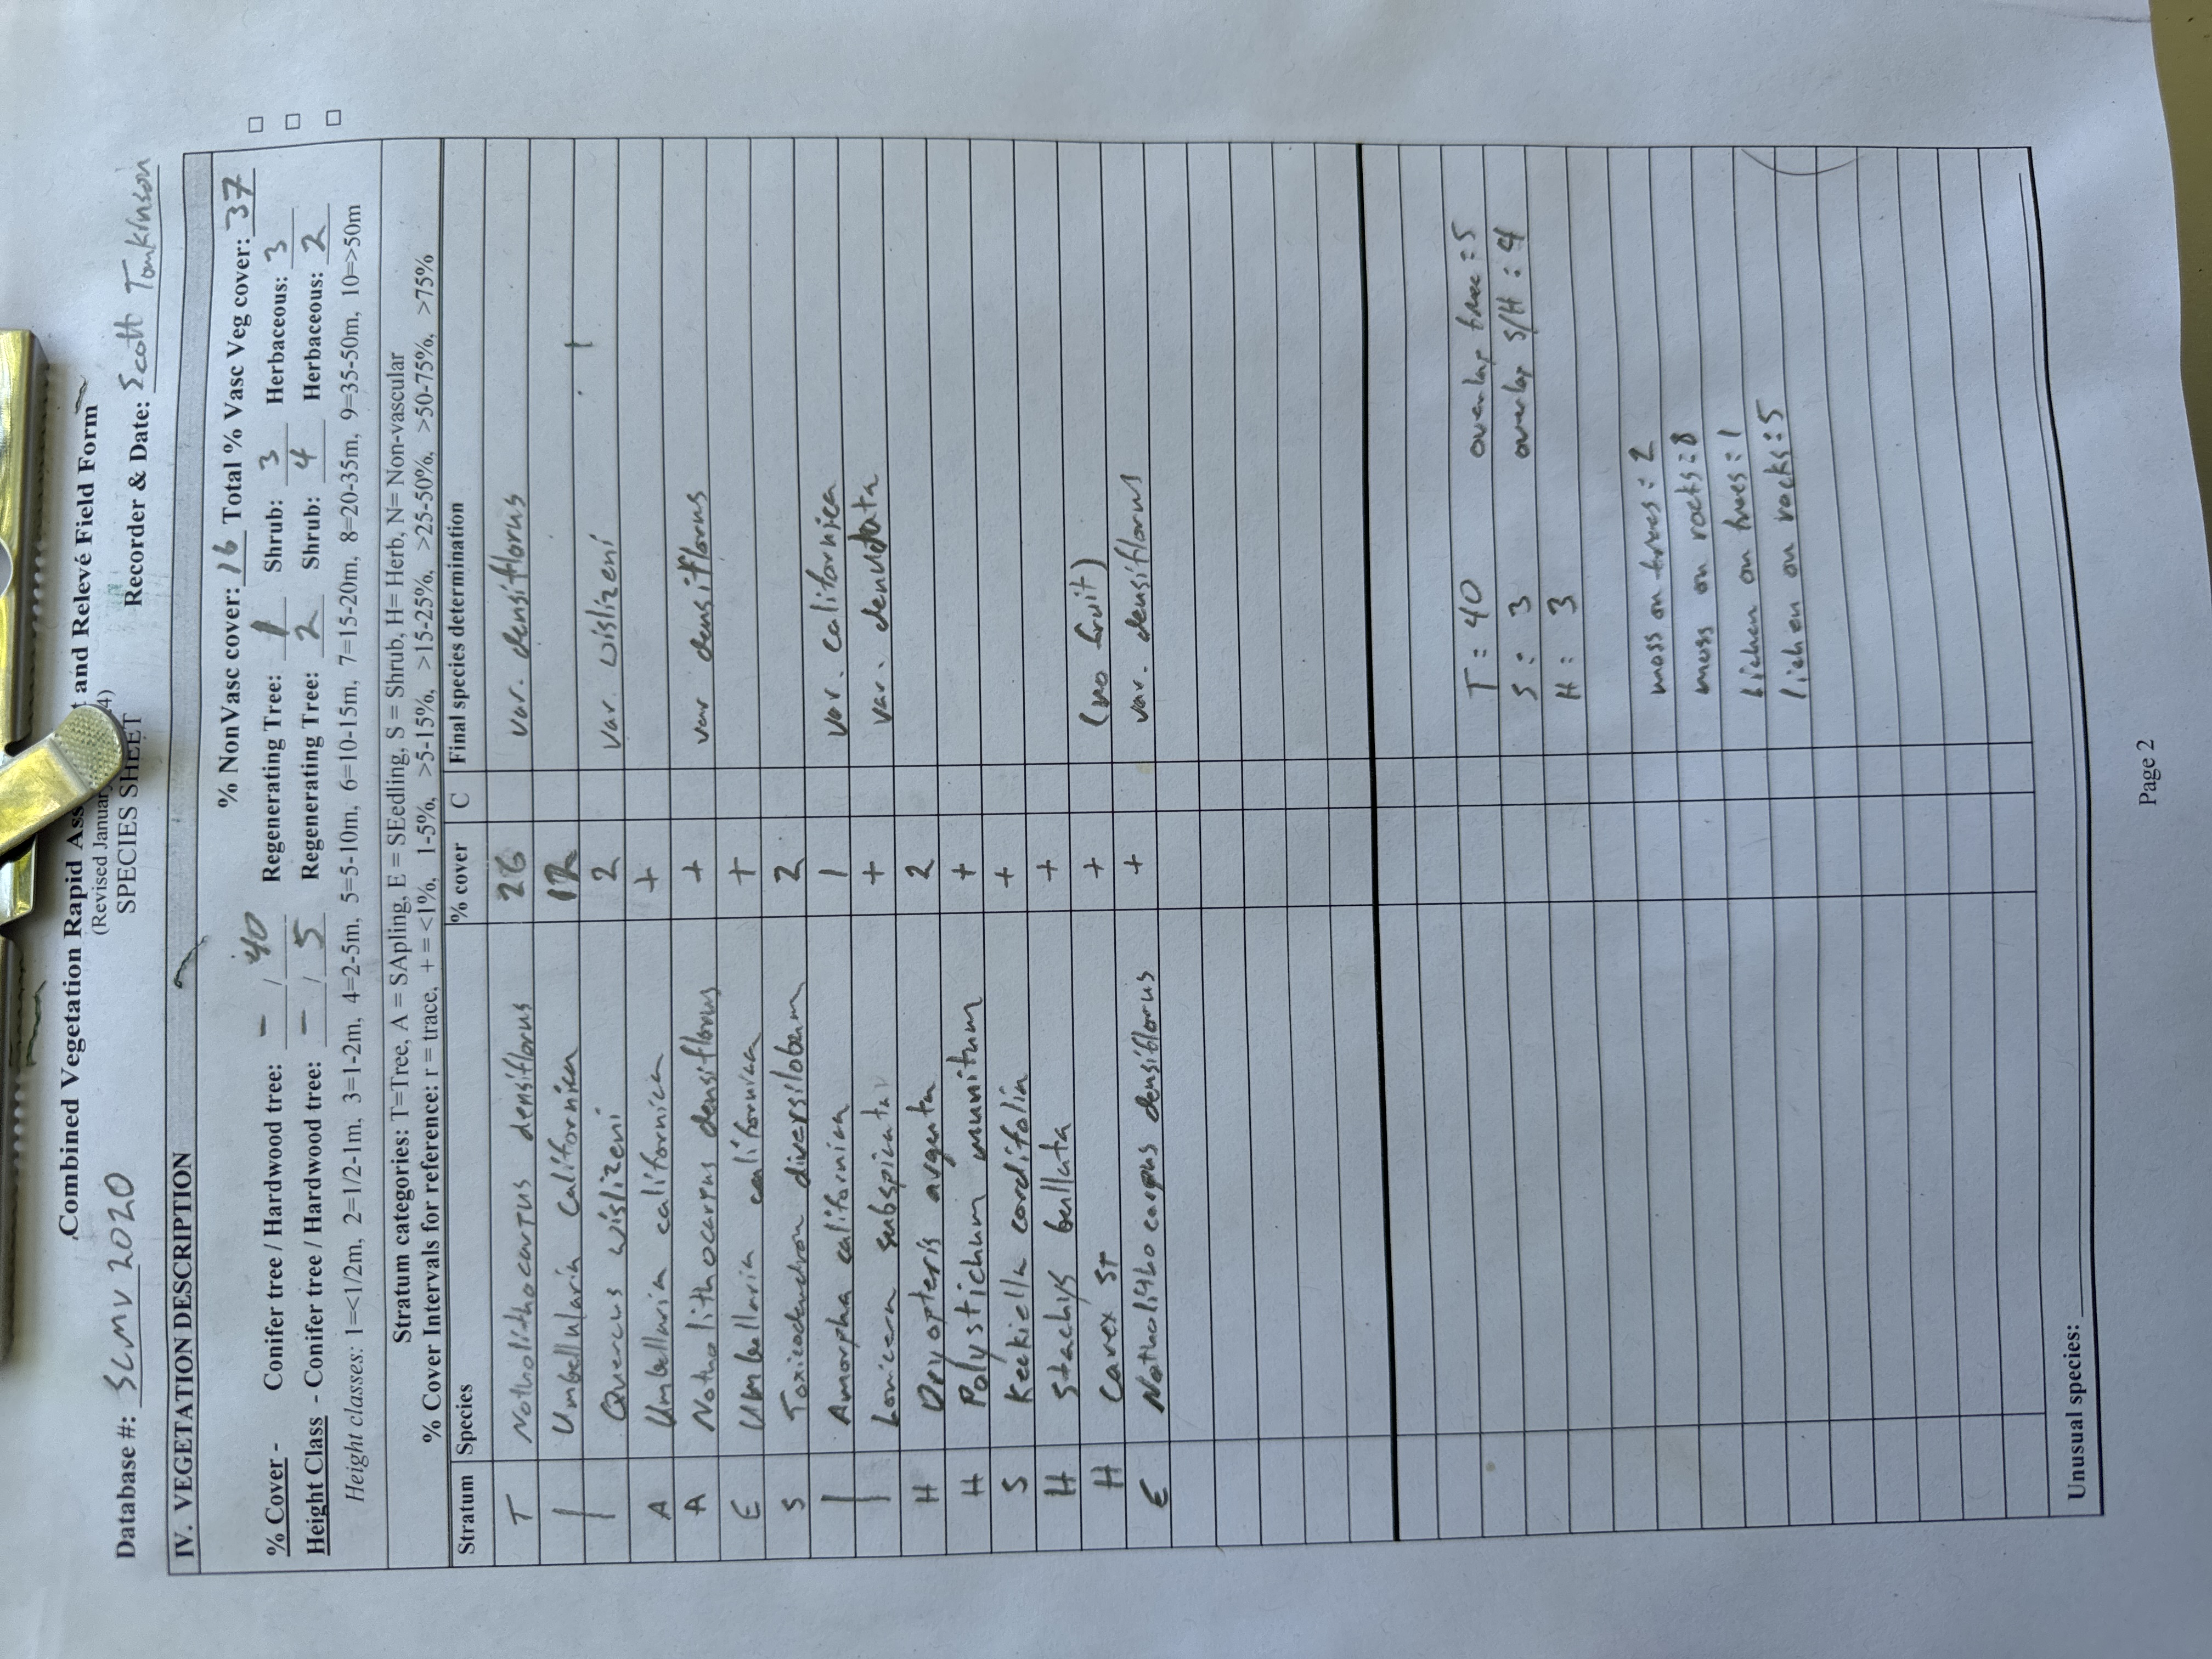 Combined Vegetation Rapid Ass t and Relevé Field Form
(Revised Januar 4)
SPECIES SHEET
Database #: SCMV 2020 Recorder & Date: Scott Tomkinson
IV. VEGETATION DESCRIPTION
% NonVasc cover: 16 Total % Vasc Veg cover: 37
% Cover - Conifer tree / Hardwood tree: - / 40 Regenerating Tree: 1 Shrub: 3 Herbaceous: 3
Height Class - Conifer tree / Hardwood tree: - / 5 Regenerating Tree: 2 Shrub: 4 Herbaceous: 2
Height classes: 1=<1/2m, 2=1/2-1m, 3=1-2m, 4=2-5m, 5=5-10m, 6=10-15m, 7=15-20m, 8=20-35m, 9=35-50m, 10=>50m
Stratum categories: T=Tree, A = SApling, E = SEedling, S = Shrub, H= Herb, N= Non-vascular
% Cover Intervals for reference: r = trace, + = <1%, 1-5%, >5-15%, >15-25%, >25-50%, >50-75%, >75%
Stratum Species % cover C Final species determination
T Notholithocarus densiflorus 26 var. densiflorus
| Umbellularia californica 12
| Quercus wislizeni 2 var. wislizeni
A Umbellaria californica +
A Notholithocarus densiflorus + var densiflorus
E Umbellaria californica +
S Toxicodendron diversilobum 2
| Amorpha californica 1 var. californica
| Lonicera subspicata + var. denudata
H Dryopteris arguta 2
H Polystichum munitum +
S Keckiella cordifolia +
H Stachys bullata +
H Carex sp + (no fruit)
E Notholithocarpus densiflorus + var. densiflorus
T = 40 overlap tree = 5
S : 3 overlap S/H : 4
H : 3
moss on trees : 2
moss on rocks : 8
lichen on trees : 1
lichen on rocks : 5
Unusual species:
Page 2